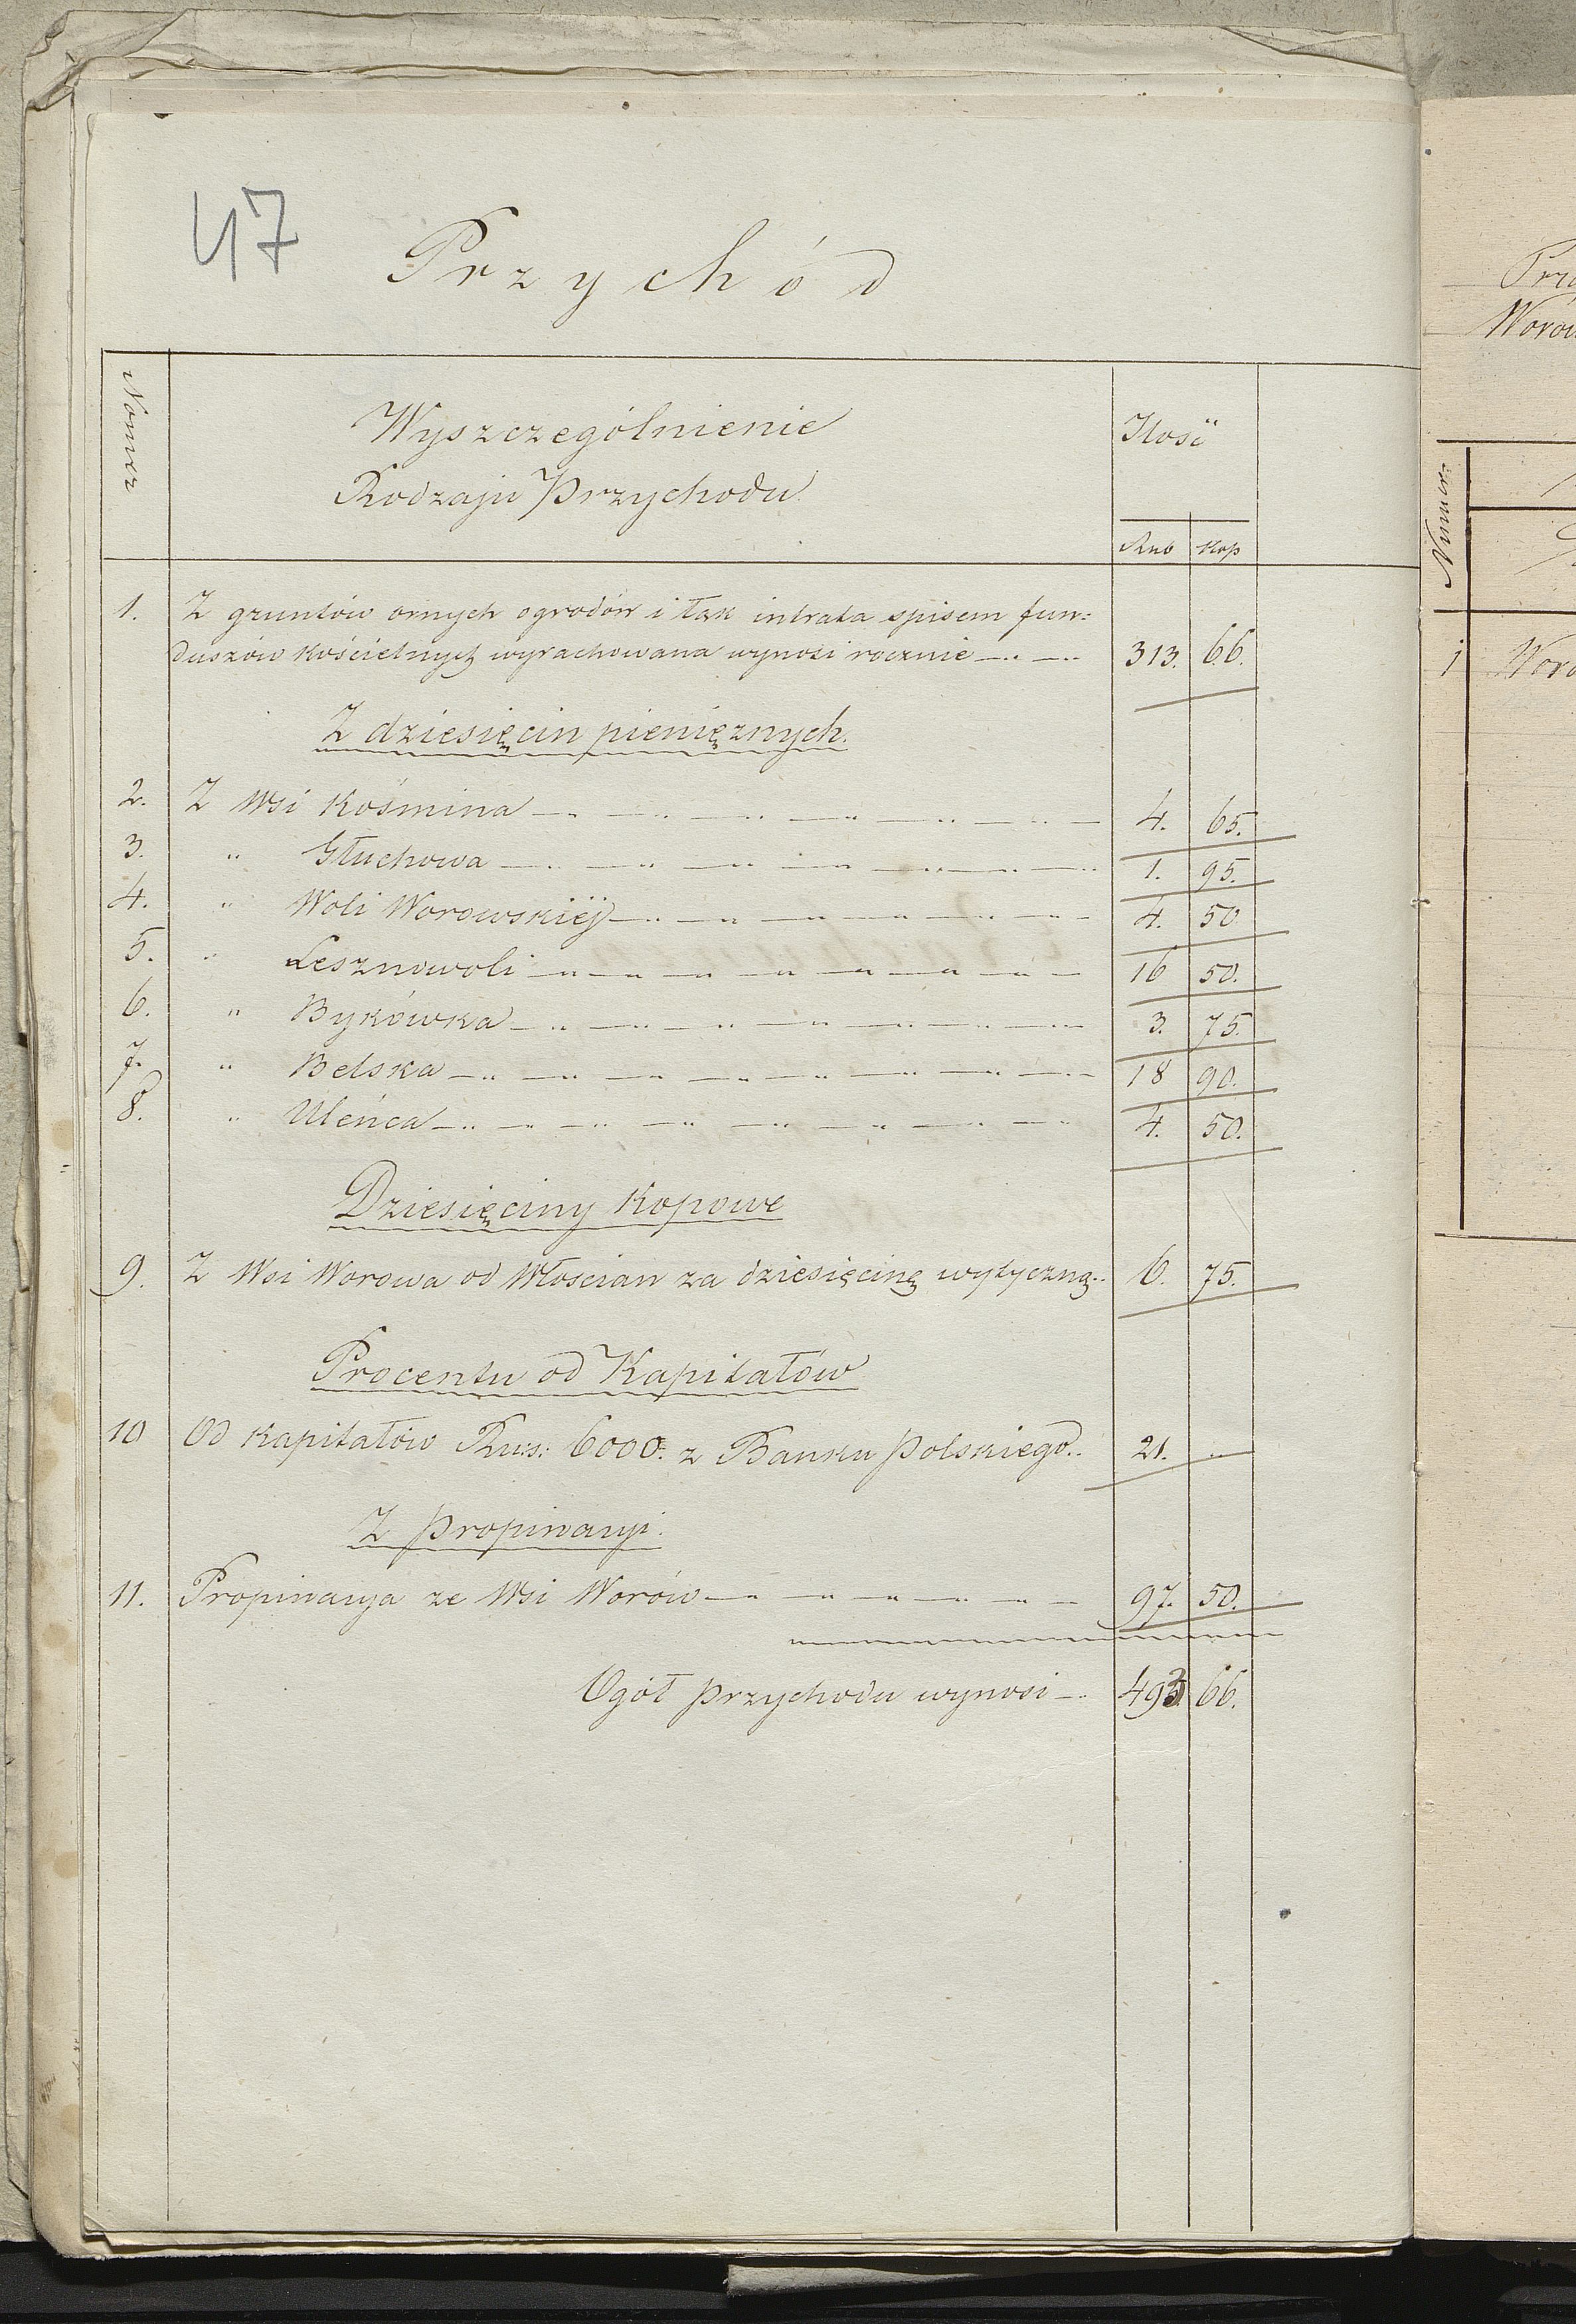 47
Przychód
Nomer
Wyszczególnienie
Rodzaju Przychodu
Ilość
Rub Kop
1. Z gruntów ornych ogrodów i łąk intrata spisem fun=
duszów kościelnych wyrachowana wynosi rocznie 313. 66.
Z dziesięcin pieniężnych.
2. Z Wsi Kośmina 4. 65.
3. " Głuchowa 1. 95.
4. " Woli Worowskiéj 4. 50
5. " Lesznowoli 16 50.
6. " Bykówka 3. 75.
7. " Belska 18 90.
8. " Uleńca 4. 50.
Dziesięciny Kopowe
9. Z Wsi Worowa od Włościan za dziesięcinę wytyczną 6. 75.
Procentu od Kapitałów
10 Od Kapitałów Rus: 6000: z Banku Polskiego.. 21. ..
Z Propinacyi.
11. Propinacya ze Wsi Worów 97. 50.
Ogół przychodu wynosi 493 66.
Worów
Numer
1